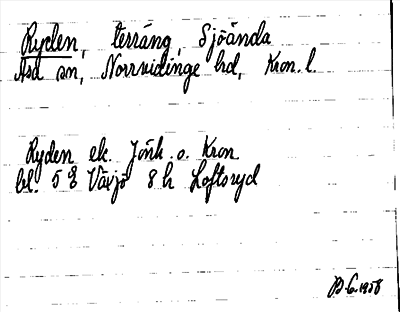 Ryden, terräng, Sjöända
Asa sn, Norrvidinge hrd, Kron. l.
Ryden ek. Jönk. o. Kron
bl. 5 E Växjö 8 h Loftsryd